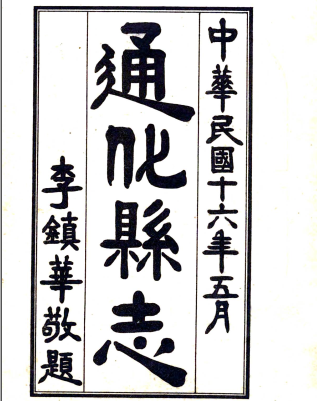 中華民國十六年五月
通化縣志
李鎮華敬題